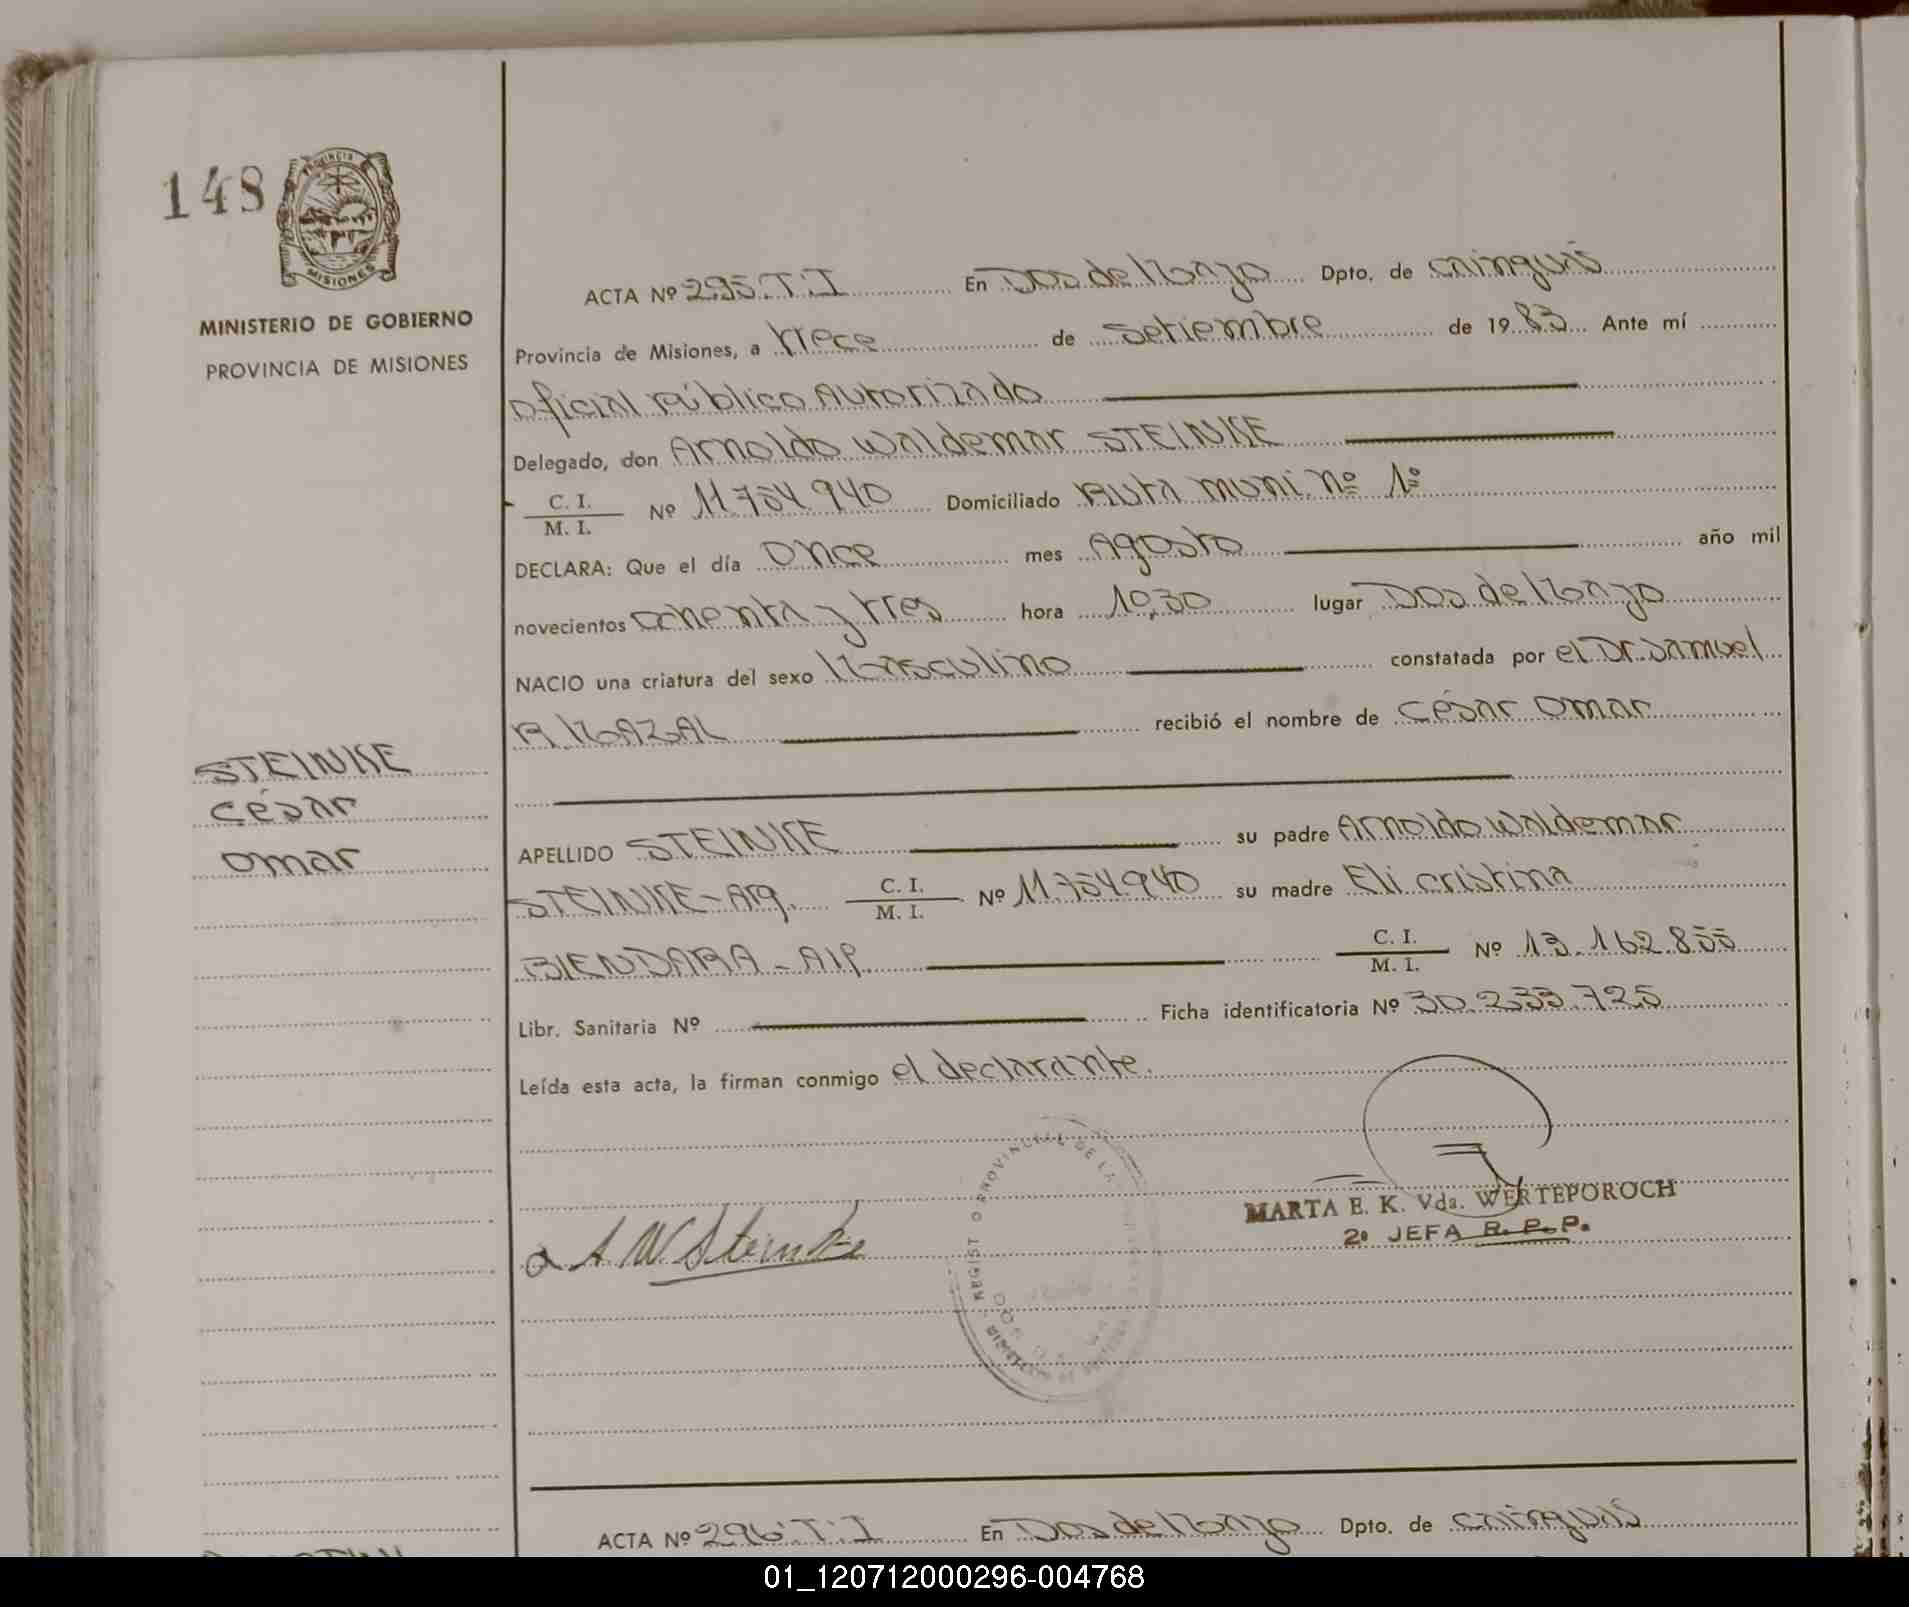 148
PROVINCIA
MISIONES
MINISTERIO DE GOBIERNO
PROVINCIA DE MISIONES
ACTA Nº 295.T.I En Dos de Mayo Dpto. de Cainguás
Provincia de Misiones, a trece de setiembre de 1983 Ante mí
oficial público Autorizado
Delegado, don Arnoldo Waldemar STEINKE
C. I.
M. I. Nº 11.754.940 Domiciliado Ruta muni. Nº 1º
DECLARA: Que el día once mes Agosto año mil
novecientos ochenta y tres hora 10,30 lugar Dos de Mayo
NACIO una criatura del sexo Masculino constatada por el Dr. Samuel
R. MAZAL recibió el nombre de César Omar
STEINKE
César
Omar
APELLIDO STEINKE su padre Arnoldo Waldemar
STEINKE-Arg. C. I.
M. I. Nº 11.754.940 su madre Eli Cristina
BIENDARA - C. I.
M. I. Nº 13.162.855
Libr. Sanitaria Nº Ficha identificatoria Nº 30.233.725
Leída esta acta, la firman conmigo el declarante.
A W. Steinke
MARTA E. K. Vda. WERTEPOROCH
2º JEFA R. P. P.
PROVINCIAL DE LA
ACTA Nº 296.T.I En Dos de Mayo Dpto. de Cainguás
01_120712000296-004768